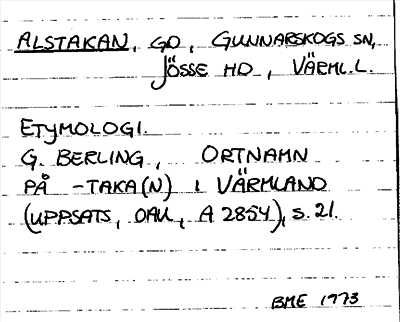 ALSTAKAN, GD, GUNNARSKOGS SN,
JÖSSE HD, VÄRML.L.
ETYMOLOGI.
G. BERLING, ORTNAMN
PÅ -TAKA(N) I VÄRMLAND
(UPPSATS, OAU, A 2854), S. 21.
BME 1973